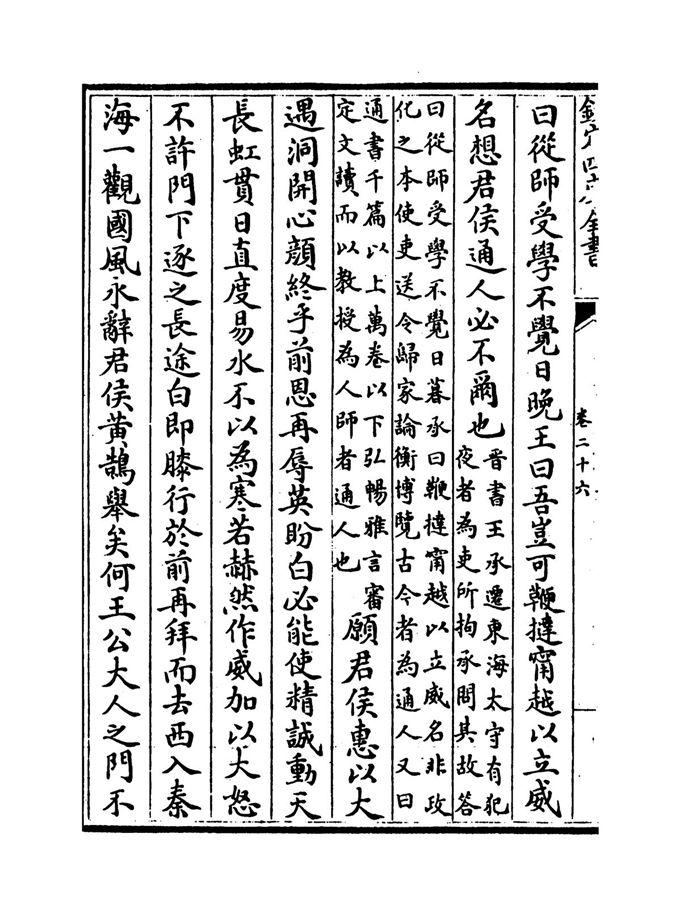 欽定四庫全書
卷二十六
曰從師受學不覺日晚王曰吾豈可鞭撻甯越以立威
名想君侯通人必不爾也
晉書王承遷東海太守有犯
夜者為吏所拘承問其故答
曰從師受學不覺日暮承曰鞭撻甯越以立威名非政
化之本使吏送令歸家論衡博覽古今者為通人又曰
通書千篇以上萬卷以下弘暢雅言審
定文讀而以教授為人師者通人也
願君侯惠以大
遇洞開心顔終乎前恩再辱英盼白必能使精誠動天
長虹貫日直度易水不以為寒若赫然作威加以大怒
不許門下逐之長途白即膝行於前再拜而去西入秦
海一觀國風永辭君侯黄鵠舉矣何王公大人之門不